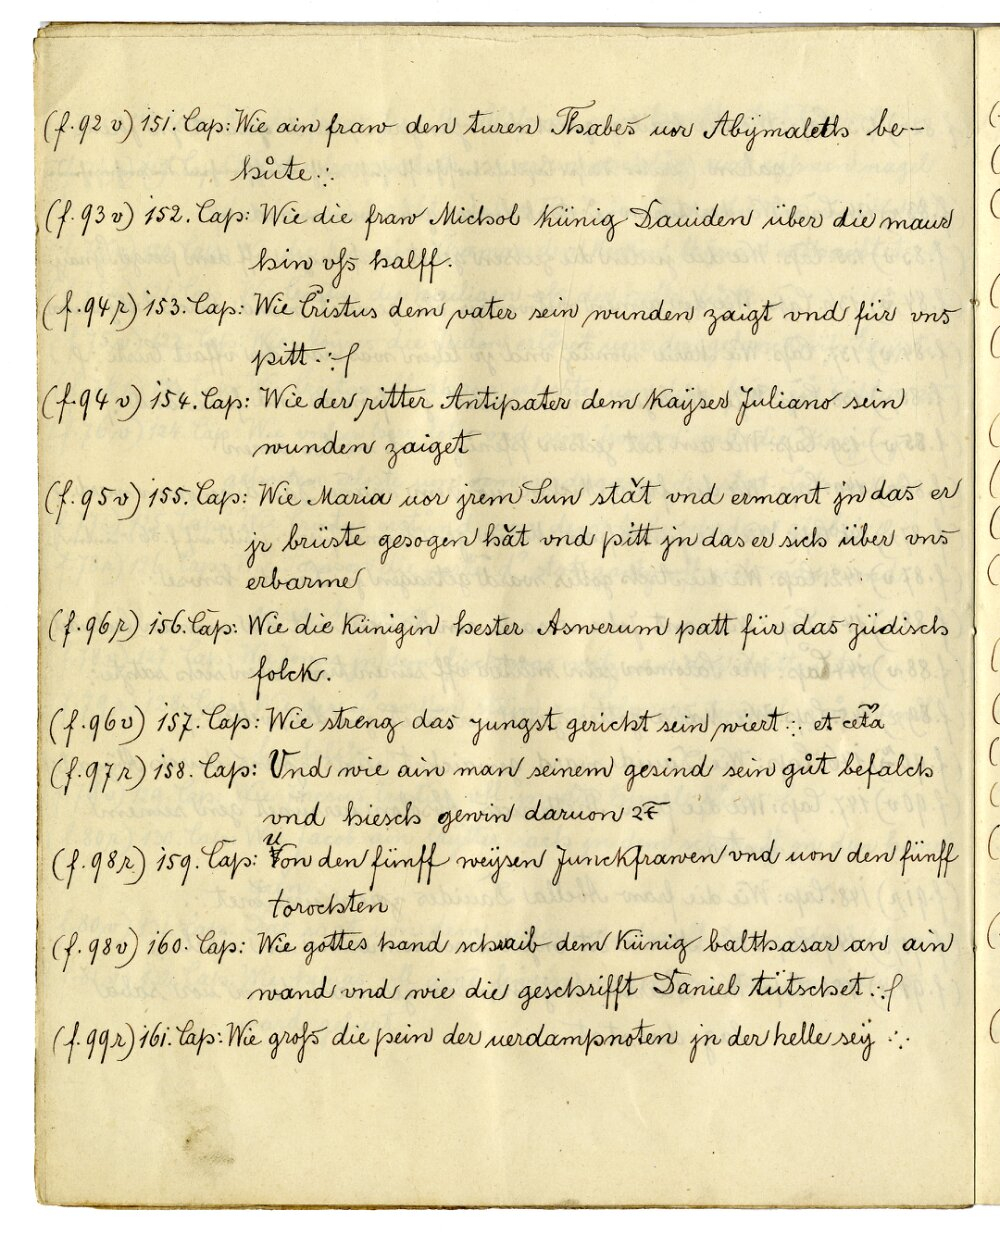 (f. 92 v) 151. Cap: Wie ain fraw den turen Thabes uor Abÿmaleth be-
hůte .:.
(f. 93 v) 152. Cap: Wie die fraw Michol Künig Dauiden über die maur
hin vſs halff.
(f. 94 r) 153. Cap: Wie Cristus dem vater sein wunden zaigt vnd für vns
pitt .:ſ
(f. 94 v) 154. Cap: Wie der ritter Antipater dem Kaÿser Juliano sein
wunden zaiget
(f. 95 v) 155. Cap: Wie Maria uor jrem Sun stăt vnd ermant jn das er
jr brüste gesogen hăt vnd pitt jn das er sich über vns
erbarme
(f. 96 r) 156. Cap: Wie die Künigin hester Aswerum patt für das jüdisch
folck.
(f. 96 v) 157. Cap: Wie streng das jungst gericht sein wiert .:. et cet̃a
(f. 97 r) 158. Cap: Vnd wie ain man seinem gesind sein gůt befalch
vnd hiesch gewin daruon ꝛc̄
(f. 98 r) 159. Cap: Uon den fünff weÿsen Junckfrawen vnd uon den fünff
torochten
(f. 98 v) 160. Cap: Wie gottes hand schraib dem Künig balthasar an ain
wand vnd wie die geschrifft Daniel tütschet .:ſ
(f. 99 r) 161. Cap: Wie groſs die pein der uerdampnoten jn der helle seÿ .:.